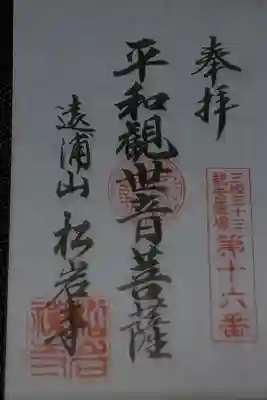 奉拝
三陸三十三
観音霊場
第十六番
平和観世音菩薩
遠浦山 松岩寺